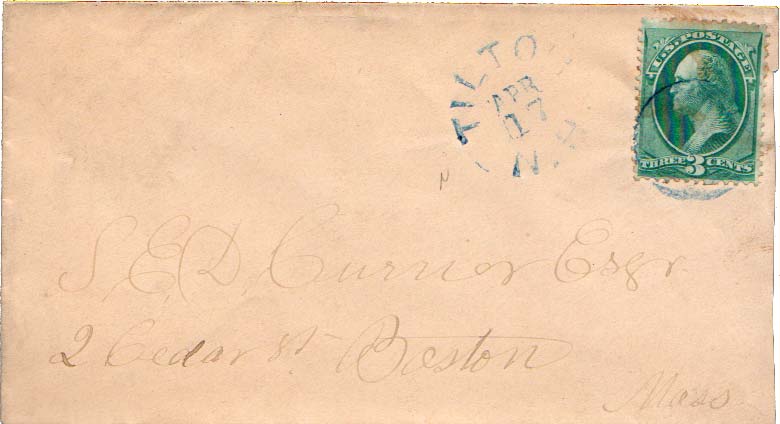 TILTON
APR
17
N.H.
U.S. POSTAGE
THREE 3 CENTS
S. E. D. Currier Esqr.
2 Cedar St Boston
Mass